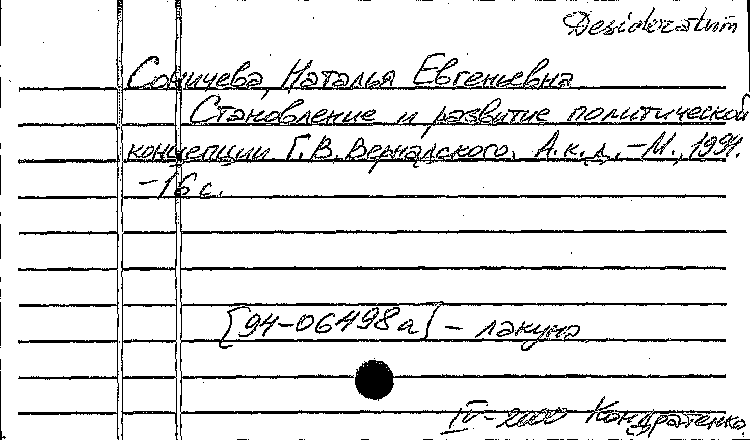 Desideratum
Соничева, Наталья Евгеньевна
Становление и развитие политической
концепции Г.В. Вернадского. А.к.д. -М., 1994.
-16 с.
[94-06498а] - лакуна
IV-2000 Кондратенко